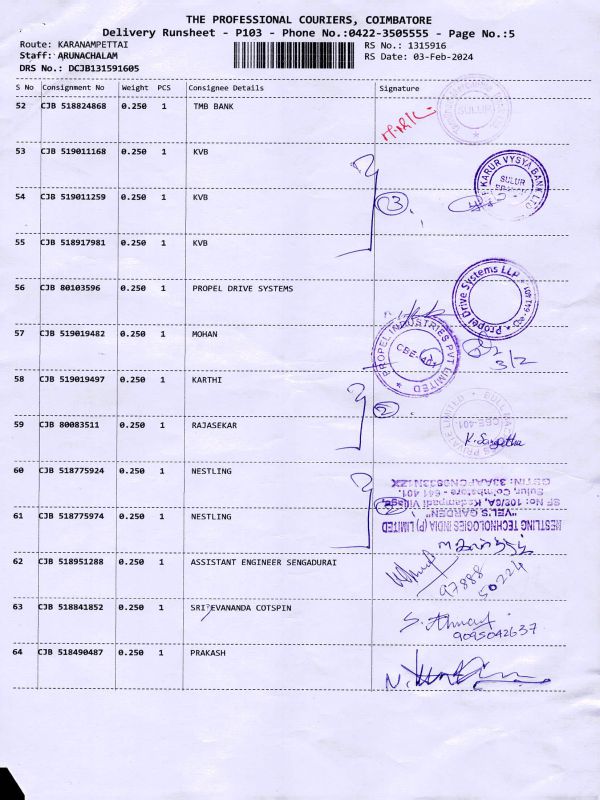 THE PROFESSIONAL COURIERS, COIMBATORE
Delivery Runsheet - P103 - Phone No.:0422-3505555 - Page No.:5
Route: KARANAMPETTAI
RS No.: 1315916
Staff: ARUNACHALAM
RS Date: 03-Feb-2024
DRS No.: DCJB131591605
S No Consignment No Weight PCS Consignee Details Signature
52 CJB 518824868 0.250 1 TMB BANK
SULUR
53 CJB 519011168 0.250 1 KVB
KARUR VYSYA BANK LTD
SULUR
54 CJB 519011259 0.250 1 KVB
3
55 CJB 518917981 0.250 1 KVB
56 CJB 80103596 0.250 1 PROPEL DRIVE SYSTEMS
Propel Drive Systems LLP
57 CJB 519019482 0.250 1 MOHAN
PROPEL INDUSTRIES PVT LIMITED
CBE-401
3/2
58 CJB 519019497 0.250 1 KARTHI
2
59 CJB 80083511 0.250 1 RAJASEKAR
PRIVATE LIMITED
CBE-401
K. Sangetha
60 CJB 518775924 0.250 1 NESTLING
NESTLING TECHNOLOGIES INDIA (P) LIMITED
"VEL'S GARDEN"
SF No: 109/2A, Kadampadi Village,
Sulur, Coimbatore - 641 401.
61 CJB 518775974 0.250 1 NESTLING
62 CJB 518951288 0.250 1 ASSISTANT ENGINEER SENGADURAI
97888
50224
63 CJB 518841852 0.250 1 SRI EVANANDA COTSPIN
9095042637
64 CJB 518490487 0.250 1 PRAKASH